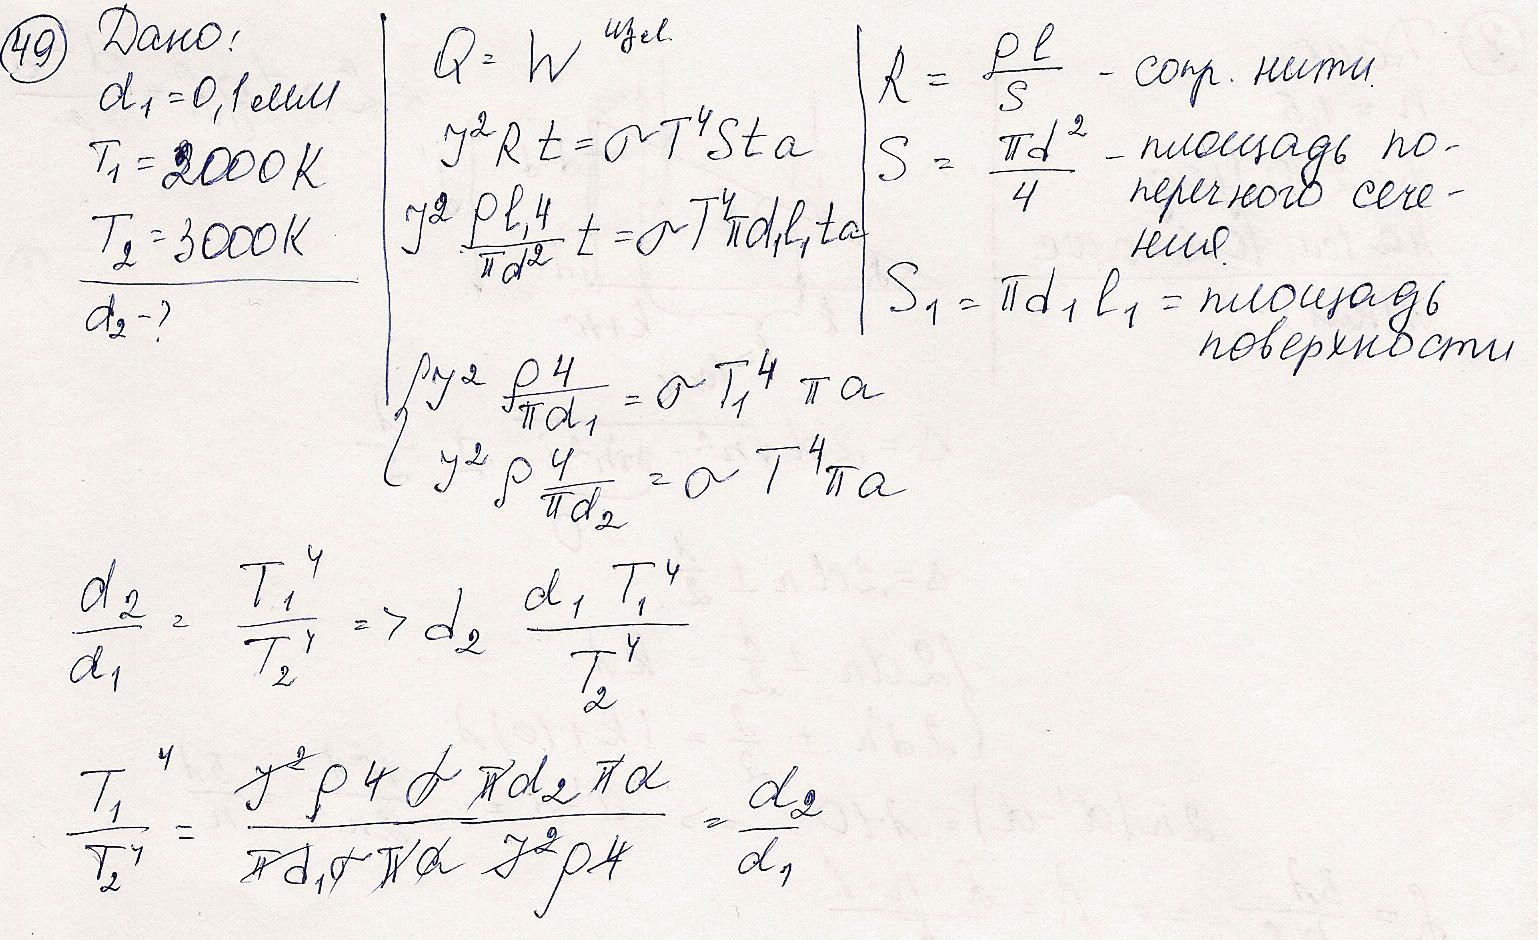 49 Дано:
d₁ = 0,1 мм
T₁ = 2000 K
T₂ = 3000 K
d₂ - ?
Q = W изл.
J² R t = σ T⁴ S t a
J² ρ l₁ 4 / π d² t = σ T⁴ π d₁ l₁ t a
R = ρ l / S - сопр. нити.
S = π d² / 4 - площадь по-
перечного сече-
ния.
S₁ = π d₁ l₁ = площадь
поверхности
{ J² ρ 4 / π d₁ = σ T₁⁴ π a
J² ρ 4 / π d₂ = σ T⁴ π a
d₂ / d₁ = T₁⁴ / T₂⁴ => d₂ d₁ T₁⁴ / T₂⁴
T₁⁴ / T₂⁴ = J² ρ 4 σ π d₂ π a / π d₁ σ π a J² ρ 4 = d₂ / d₁